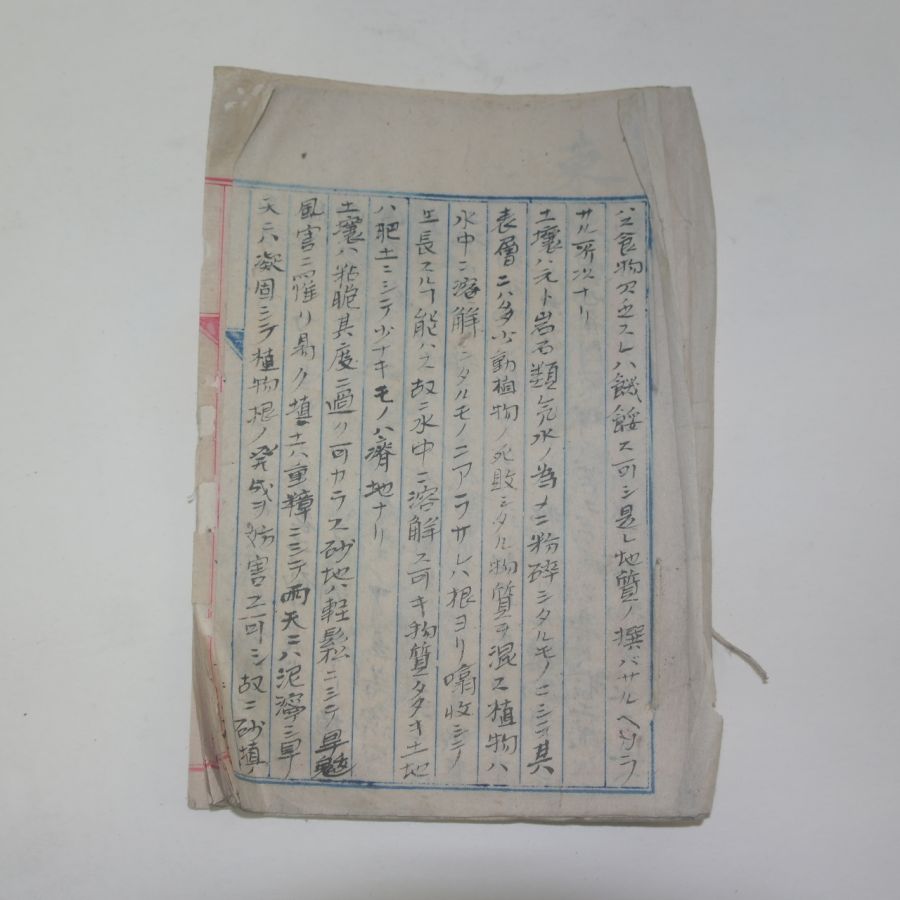 ハ食物欠乏スレハ餓餒ス可シ是レ地質ノ撰バサルヘカラ
サル所次ナリ
土壌ハ元ト岩石類気水ノ為メニ粉砕シタルモノニシテ其
表層ニハ多少動植物ノ死敗シタル物質ヲ混ス植物ハ
水中ニ溶解シタルモノニアラサレハ根ヨリ嗡收シテ
生長スルヿ能ハス故ニ水中ニ溶解ス可キ物質多キ土地
ハ肥土ニシテ少ナキモノハ瘠地ナリ
土壌ハ粘脆其度ニ過ク可カラス砂地ハ軽鬆ニシテ旱魃
風害ニ罹リ易ク填土ハ重粘ニシテ雨天ニハ泥濘シ旱
天ニハ凝固シテ植物根ノ発成ヲ妨害ス可シ故ニ砂填